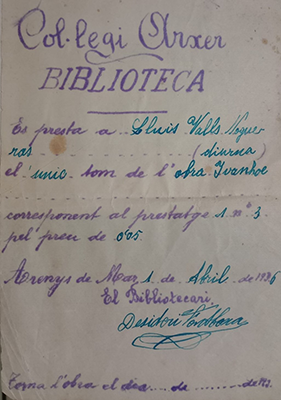 Col·legi Arxer
BIBLIOTECA
Es presta a Lluis Valls Nogue-
ras (diürna)
el unic tom de l'obra Ivanhoe
corresponent al prestatge 1 nº 3
pel preu de 0'05
Arenys de Mar, 1 de Abril de 1936
El Bibliotecari,
Desideri
Torna l'obra el dia de de 193